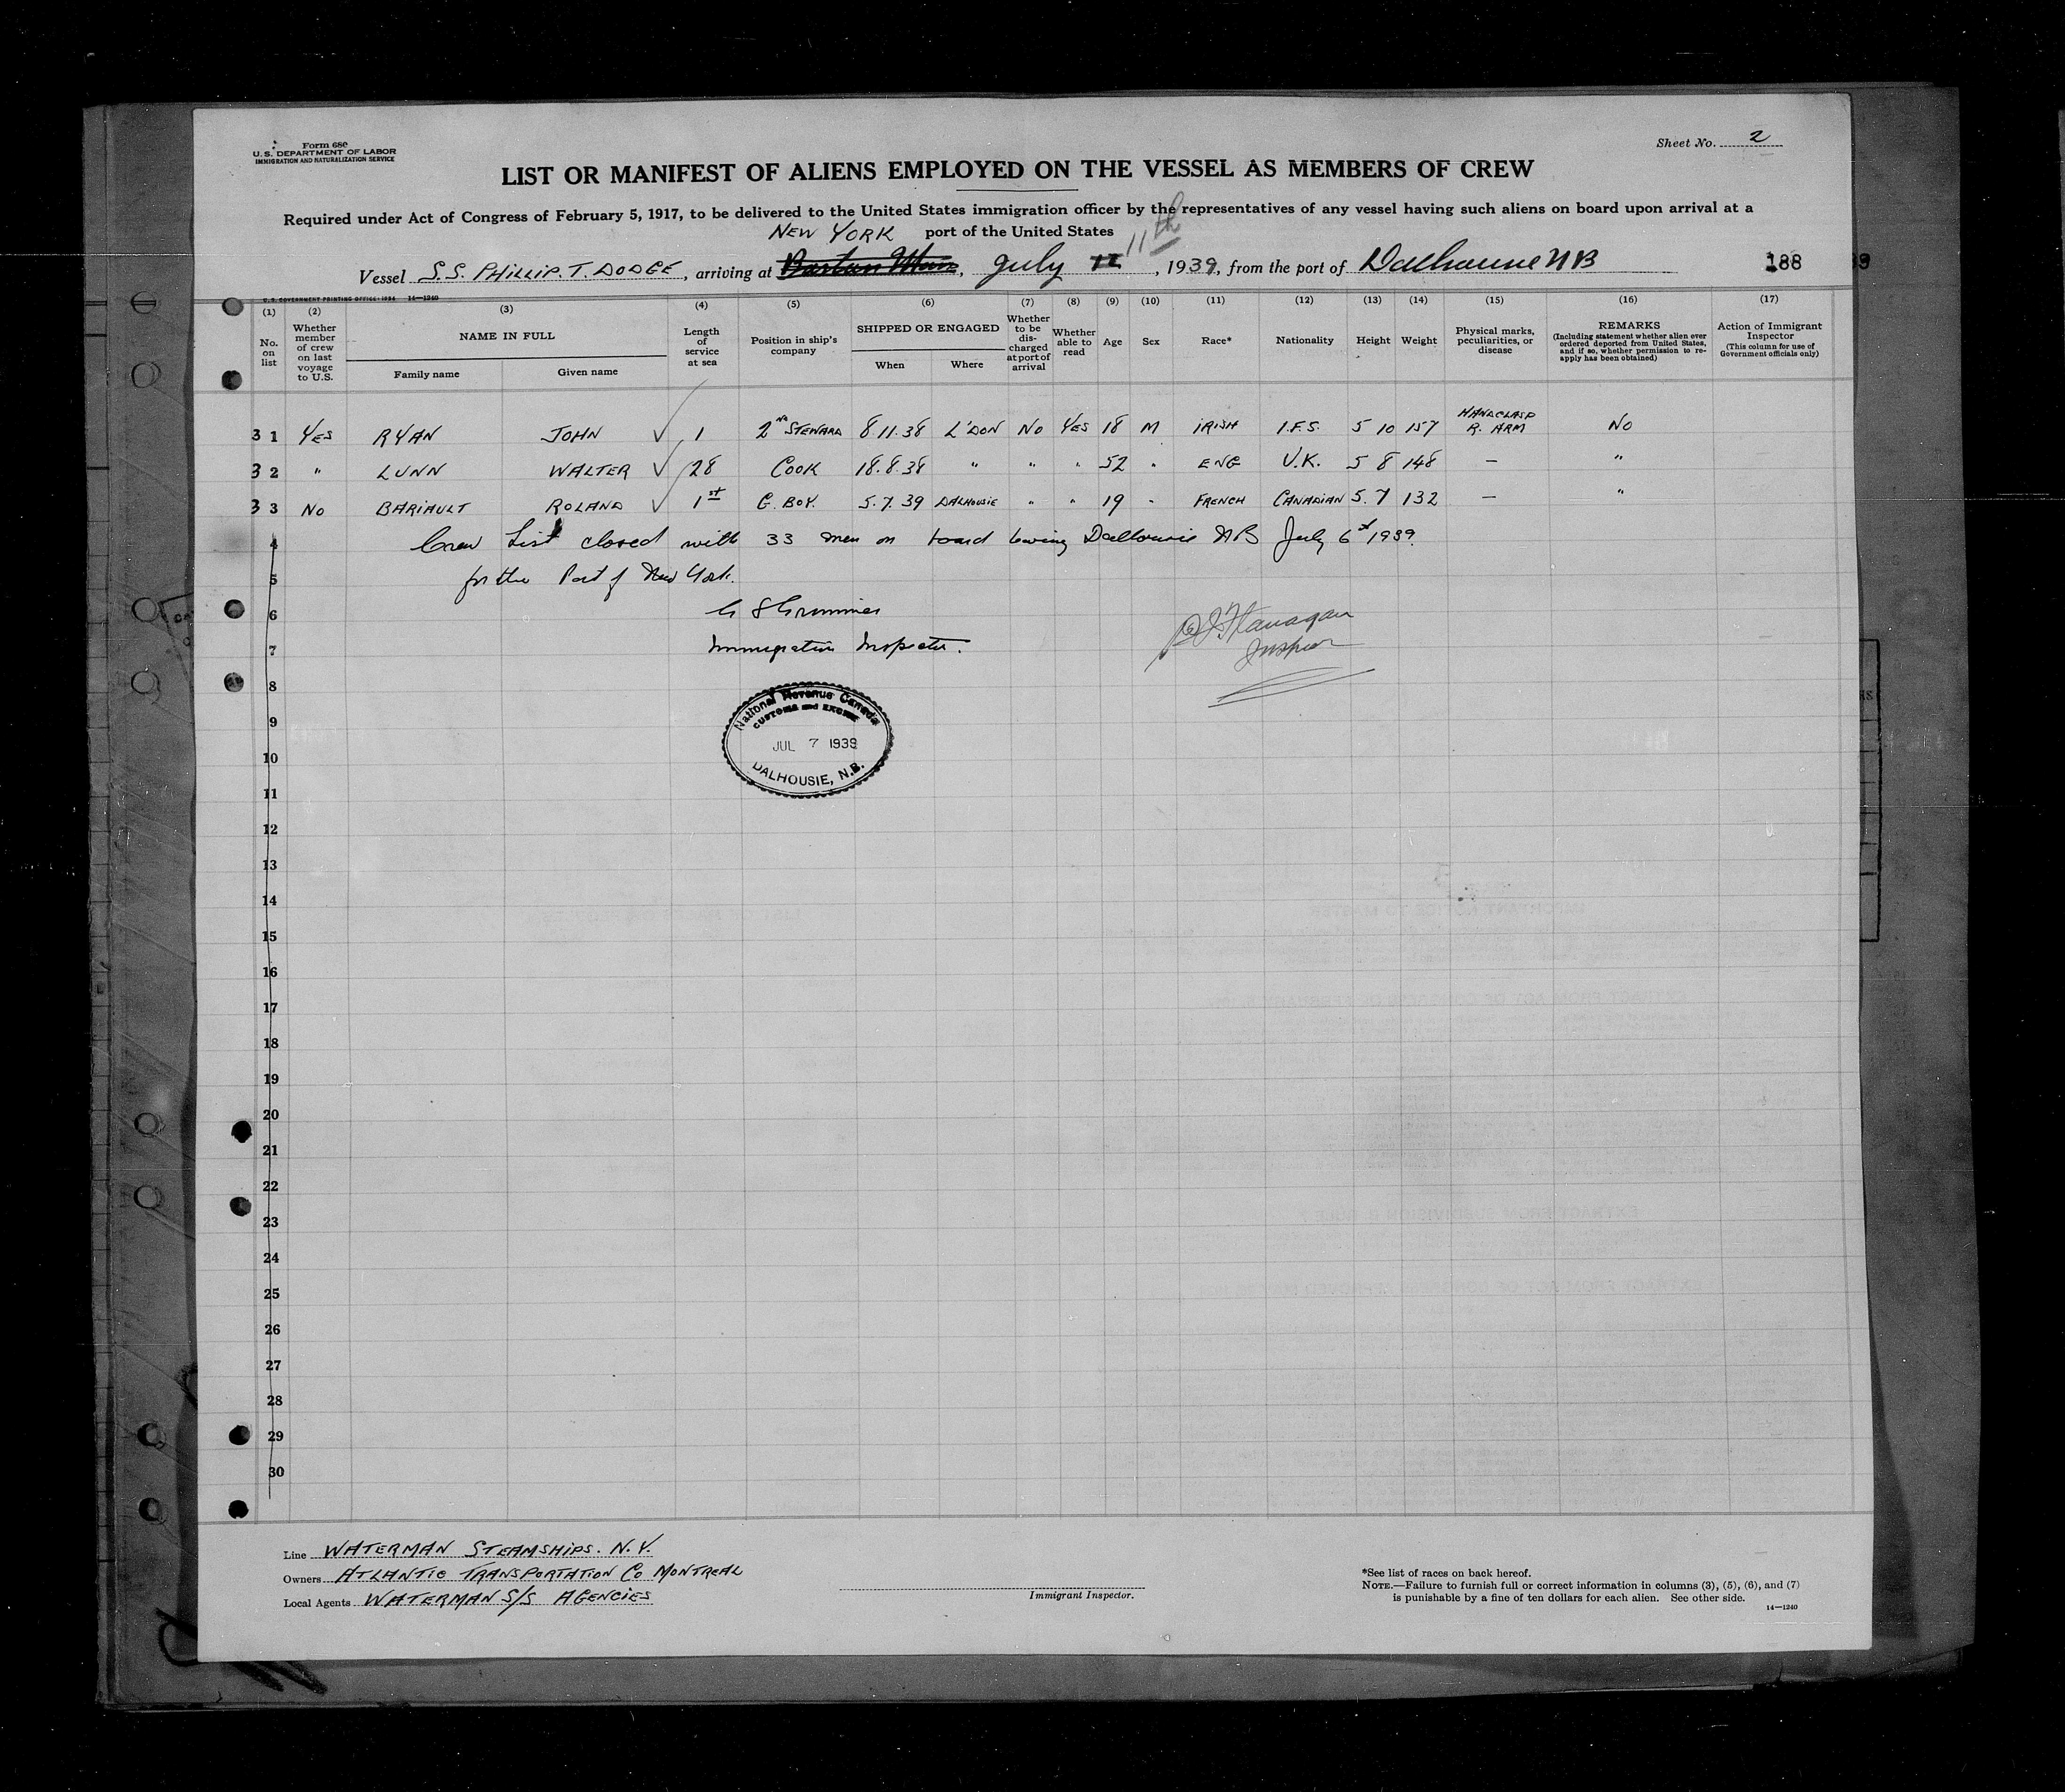 Form 680
U. S. DEPARTMENT OF LABOR
IMMIGRATION AND NATURALIZATION SERVICE
Sheet No. 2
LIST OR MANIFEST OF ALIENS EMPLOYED ON THE VESSEL AS MEMBERS OF CREW
Required under Act of Congress of February 5, 1917, to be delivered to the United States immigration officer by the representatives of any vessel having such aliens on board upon arrival at a
NEW YORK port of the United States 11th
Vessel S.S. PHILLIP. T. DODGE, arriving at Boston Mass, July 12, 1939, from the port of Dalhousie NB 188
U. S. GOVERNMENT PRINTING OFFICE: 1934 14—1240
(1) No. on list
(2) Whether member of crew on last voyage to U.S.
(3) NAME IN FULL
Family name Given name
(4) Length of service at sea
(5) Position in ship's company
(6) SHIPPED OR ENGAGED
When Where
(7) Whether to be discharged at port of arrival
(8) Whether able to read
(9) Age
(10) Sex
(11) Race*
(12) Nationality
(13) Height
(14) Weight
(15) Physical marks, peculiarities, or disease
(16) REMARKS
(Including statement whether alien ever ordered deported from United States, and if so, whether permission to re-apply has been obtained)
(17) Action of Immigrant Inspector
(This column for use of Government officials only)
31 YES RYAN JOHN ✓ 1 2nd STEWARD 8.11.38 L'DON NO YES 18 M IRISH I.F.S. 5 10 157 HANDCLASP R. ARM NO
32 " LUNN WALTER ✓ 28 COOK 18.8.38 " " " 52 " ENG U.K. 5 8 148 — "
33 NO BARIAULT ROLAND ✓ 1st G. BOY. 5.7.39 DALHOUSIE " " 19 " FRENCH CANADIAN 5.7 132 — "
4 Crew List closed with 33 men on board leaving Dalhousie NB July 6th 1939.
5 for the Port of New York.
6
7 Immigration Inspector. Flanagan Inspector
8
9
10
11
National Revenue Canada
CUSTOMS and EXCISE
JUL 7 1939
DALHOUSIE, N.B.
12
13
14
15
16
17
18
19
20
21
22
23
24
25
26
27
28
29
30
Line WATERMAN STEAMSHIPS. N.Y.
Owners ATLANTIC TRANSPORTATION Co MONTREAL
Local Agents WATERMAN S/S AGENCIES
Immigrant Inspector.
*See list of races on back hereof.
NOTE.—Failure to furnish full or correct information in columns (3), (5), (6), and (7)
is punishable by a fine of ten dollars for each alien. See other side.
14—1240